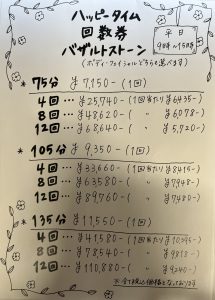 ハッピータイム
回数券
バザルトストーン
平日
9時〜15時
(ボディ・フェイシャルどちらも選べます)
* 75分 ¥7,150-(1回)
4回…¥25,740-(1回当たり¥6435-)
8回…¥48,620-( 〃 ¥6078-)
12回…¥68,640-( 〃 ¥5,720-)
* 105分 ¥9,350-(1回)
4回…¥33,660-(1回当たり¥8415-)
8回…¥63,580-( 〃 ¥7948-)
12回…¥89,760-( 〃 ¥7480-)
* 135分 ¥11,550-(1回)
4回…¥41,580-(1回当たり¥10395-)
8回…¥78,540-( 〃 ¥9818-)
12回…¥110,880-( 〃 ¥9240-)
※全て税込価格となっております